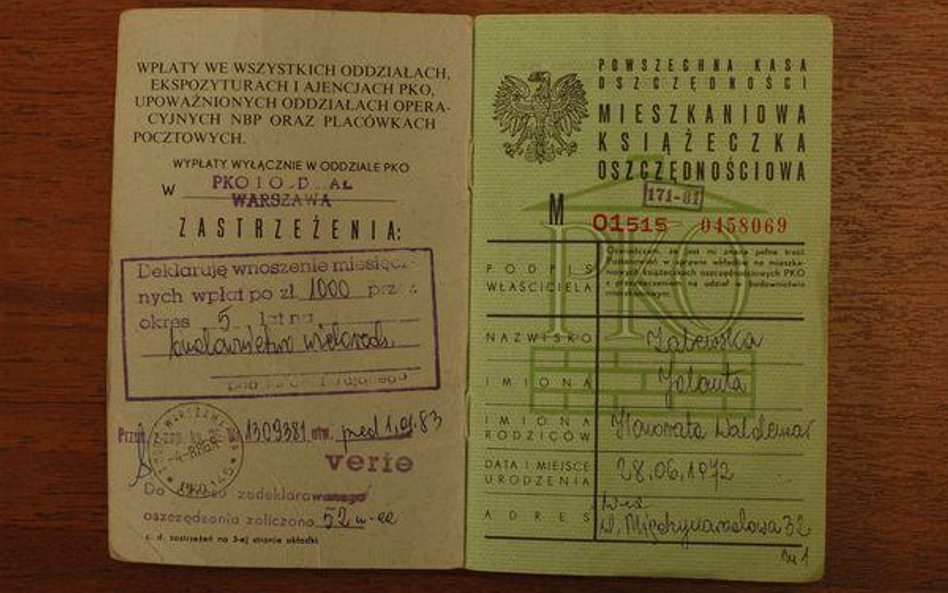 WPŁATY WE WSZYSTKICH ODDZIAŁACH,
EKSPOZYTURACH I AJENCJACH PKO,
UPOWAŻNIONYCH ODDZIAŁACH OPERA-
CYJNYCH NBP ORAZ PLACÓWKACH
POCZTOWYCH.
WYPŁATY WYŁĄCZNIE W ODDZIALE PKO
W PKO I O
WARSZAWA
ZASTRZEŻENIA:
Deklaruję wnoszenie miesięcz-
nych wpłat po zł 1000 przez
okres 5 lat na
budownictwo wielorodz.
1309381 otw. przed 1.01.83
verte
Do zadeklarowanego
oszczędzania zaliczono 52 m-ce
c. d. zastrzeżeń na 3-ej stronie okładki
POWSZECHNA KASA
OSZCZĘDNOŚCI
MIESZKANIOWA
KSIĄŻECZKA
OSZCZĘDNOŚCIOWA
171-81
M 01515 0458069
PKO
PODPIS
WŁAŚCICIELA
Oświadczam, że jest mi znana pełna treść
Postanowień w sprawie wkładów na mieszka-
niowych książeczkach oszczędnościowych PKO
z przeznaczeniem na udział w budownictwie
mieszkaniowym.
NAZWISKO Zalewska
IMIONA Jolanta
IMIONA
RODZICÓW Honorata Waldemar
DATA I MIEJSCE
URODZENIA 28.06.1972
ADRES ul. Międzynarodowa 32